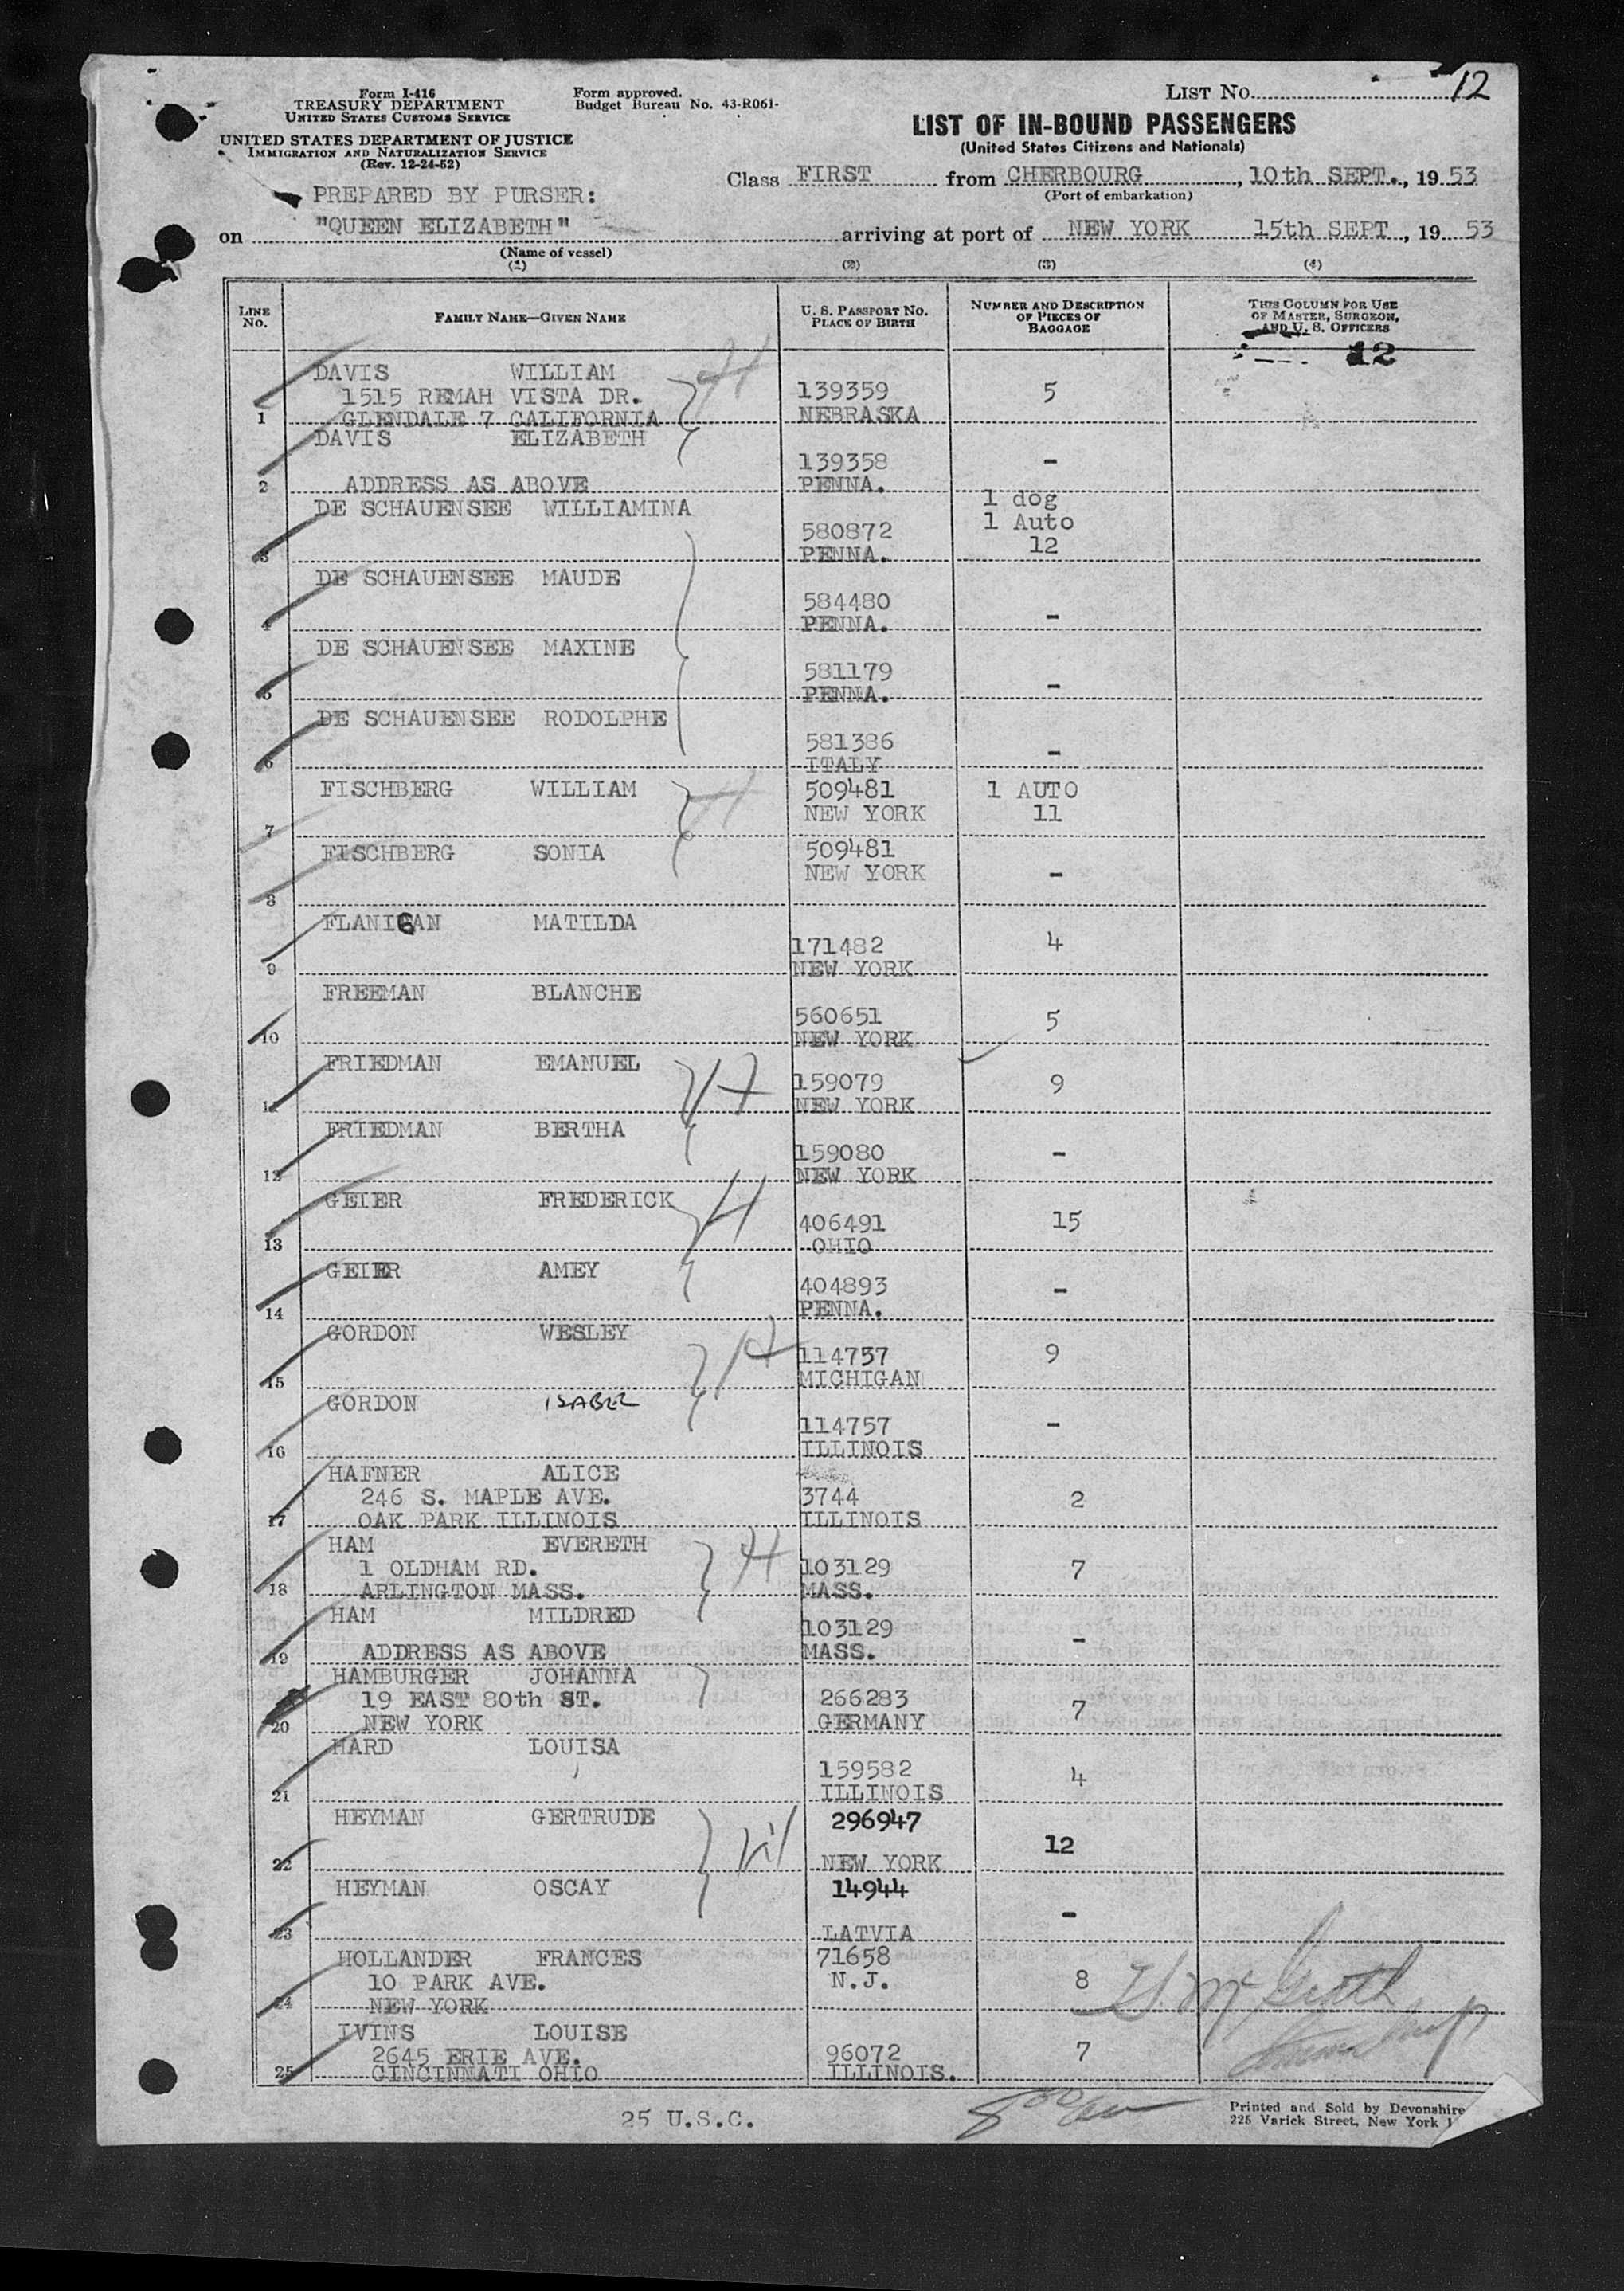 LIST NO. 12
Form I-416
TREASURY DEPARTMENT
UNITED STATES CUSTOMS SERVICE
UNITED STATES DEPARTMENT OF JUSTICE
IMMIGRATION AND NATURALIZATION SERVICE
(Rev. 12-24-52)
Form approved.
Budget Bureau No. 43-R061-
LIST OF IN-BOUND PASSENGERS
(United States Citizens and Nationals)
Class FIRST from CHERBOURG, 10th SEPT., 1953
(Port of embarkation)
PREPARED BY PURSER:
on "QUEEN ELIZABETH" arriving at port of NEW YORK 15th SEPT, 1953
(Name of vessel)
(1) (2) (3) (4)
LINE NO. FAMILY NAME—GIVEN NAME U. S. PASSPORT NO. PLACE OF BIRTH NUMBER AND DESCRIPTION OF PIECES OF BAGGAGE THIS COLUMN FOR USE OF MASTER, SURGEON, AND U. S. OFFICERS
12
DAVIS WILLIAM
1515 REMAH VISTA DR. 139359 5
1 GLENDALE 7 CALIFORNIA NEBRASKA
DAVIS ELIZABETH
139358 -
2 ADDRESS AS ABOVE PENNA.
DE SCHAUENSEE WILLIAMINA 1 dog
580872 1 Auto
3 PENNA. 12
DE SCHAUENSEE MAUDE
584480
4 PENNA. -
DE SCHAUENSEE MAXINE
581179
5 PENNA. -
DE SCHAUENSEE RODOLPHE
581386
6 ITALY -
FISCHBERG WILLIAM 509481 1 AUTO
7 NEW YORK 11
FISCHBERG SONIA 509481
8 NEW YORK -
FLANIGAN MATILDA
171482 4
9 NEW YORK
FREEMAN BLANCHE
560651 5
10 NEW YORK
FRIEDMAN EMANUEL
159079 9
11 NEW YORK
FRIEDMAN BERTHA
159080 -
12 NEW YORK
GEIER FREDERICK
406491 15
13 OHIO
GEIER AMEY
404893 -
14 PENNA.
GORDON WESLEY
114757 9
15 MICHIGAN
GORDON ISABEL
114757 -
16 ILLINOIS
HAFNER ALICE
246 S. MAPLE AVE. 3744 2
17 OAK PARK ILLINOIS ILLINOIS
HAM EVERETH
1 OLDHAM RD. 103129 7
18 ARLINGTON MASS. MASS.
HAM MILDRED 103129
19 ADDRESS AS ABOVE MASS. -
HAMBURGER JOHANNA
19 EAST 80th ST. 266283 7
20 NEW YORK GERMANY
HARD LOUISA
159582 4
21 ILLINOIS
HEYMAN GERTRUDE 296947
12
22 NEW YORK
HEYMAN OSCAY 14944
-
23 LATVIA
HOLLANDER FRANCES 71658
10 PARK AVE. N.J. 8
24 NEW YORK
IVINS LOUISE
2645 ERIE AVE. 96072 7
25 CINCINNATI OHIO ILLINOIS.
25 U.S.C.
Printed and Sold by Devonshire
225 Varick Street, New York 1